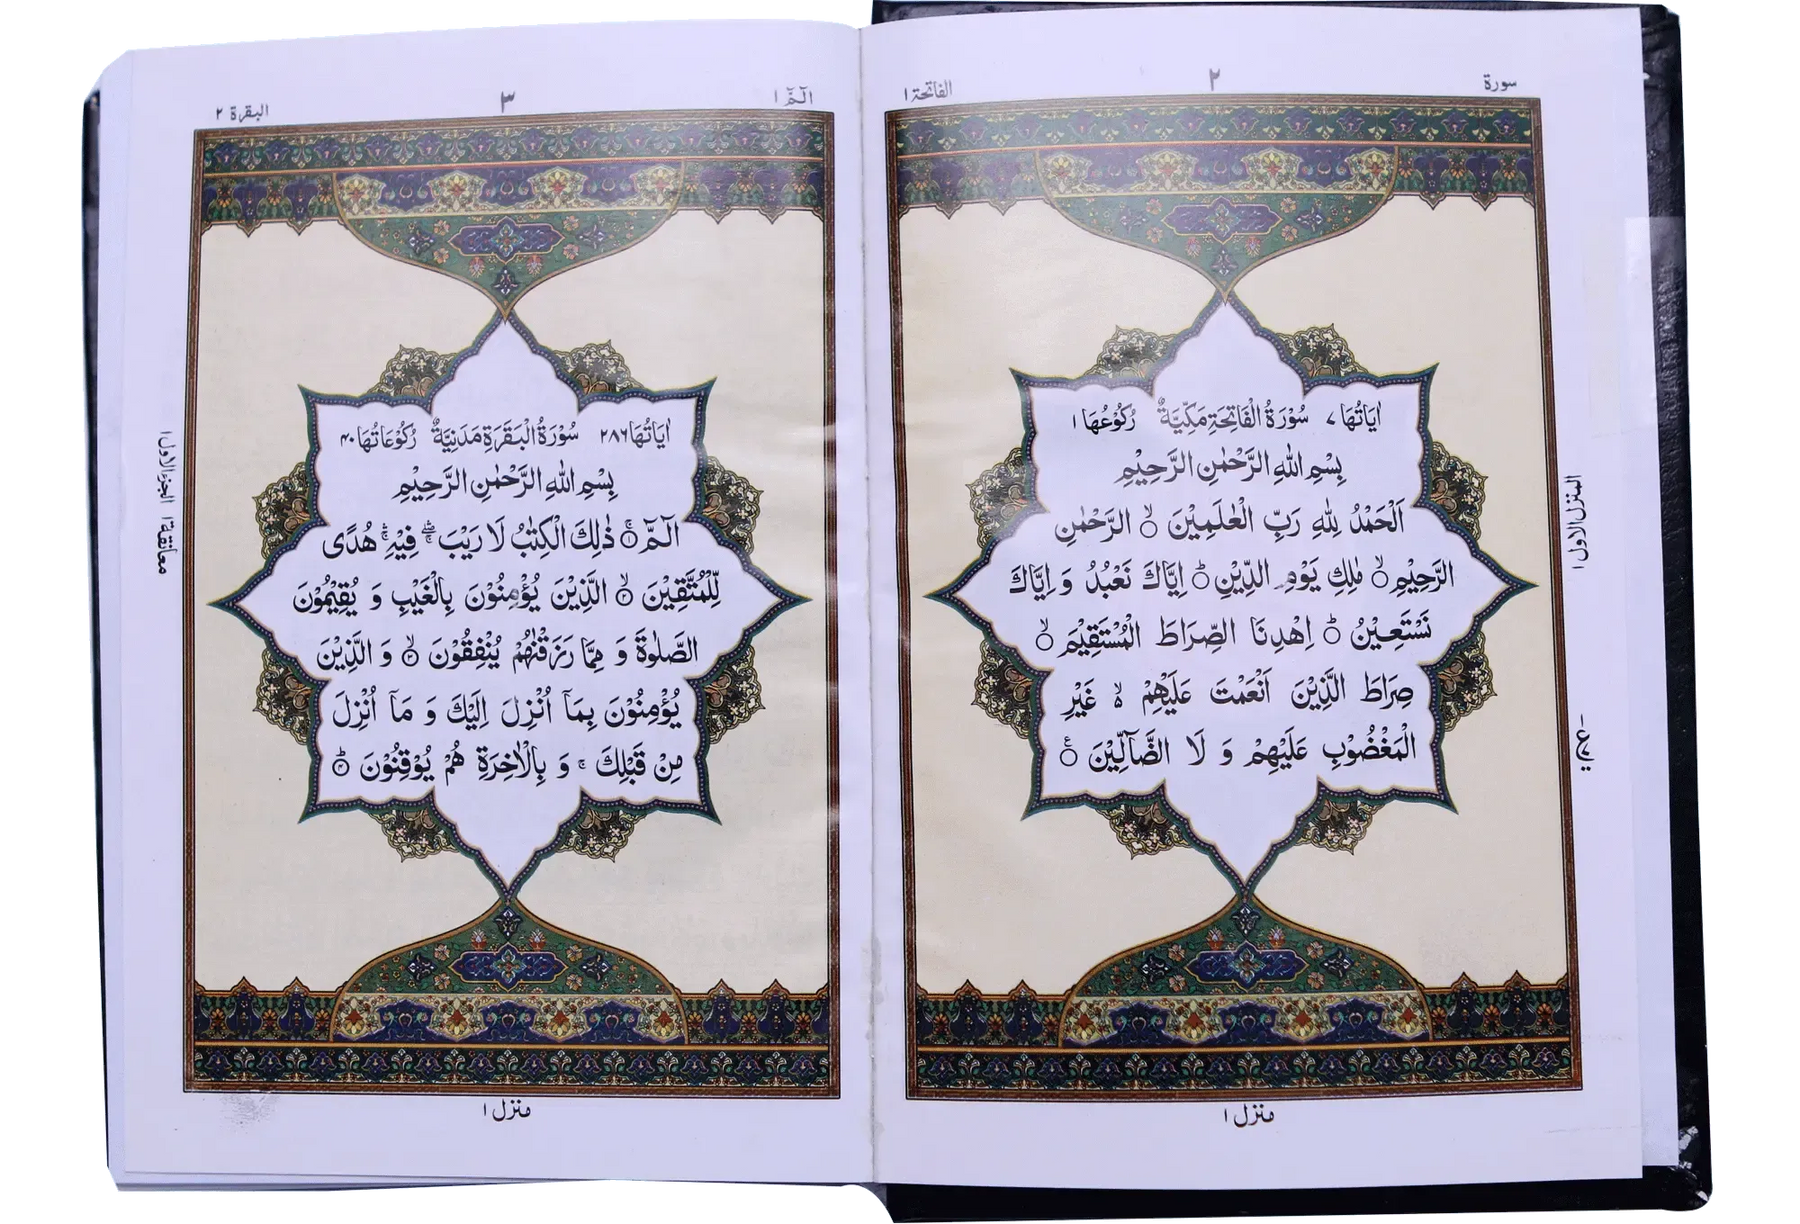 سورة ٢ الفاتحة ١
اٰيَاتُهَا ٧ سُوْرَةُ الْفَاتِحَةِ مَكِّيَّةٌ رُكُوْعُهَا ١
بِسْمِ اللهِ الرَّحْمٰنِ الرَّحِيْمِ
اَلْحَمْدُ لِلّٰهِ رَبِّ الْعٰلَمِيْنَ ۙ الرَّحْمٰنِ
الرَّحِيْمِ ۙ مٰلِكِ يَوْمِ الدِّيْنِ ؕ اِيَّاكَ نَعْبُدُ وَ اِيَّاكَ
نَسْتَعِيْنُ ؕ اِهْدِنَا الصِّرَاطَ الْمُسْتَقِيْمَ ۙ
صِرَاطَ الَّذِيْنَ اَنْعَمْتَ عَلَيْهِمْ ۙ غَيْرِ
الْمَغْضُوْبِ عَلَيْهِمْ وَ لَا الضَّآلِّيْنَ
المنزل الاول ١
منزل ١
الٓمّٓ ١ ٣ البقرة ٢
اٰيَاتُهَا ٢٨٦ سُوْرَةُ الْبَقَرَةِ مَدَنِيَّةٌ رُكُوْعَاتُهَا ٤٠
بِسْمِ اللهِ الرَّحْمٰنِ الرَّحِيْمِ
الٓمّٓ ۚ ١ ذٰلِكَ الْكِتٰبُ لَا رَيْبَ ۛ فِيْهِ ۛ هُدًى
لِّلْمُتَّقِيْنَ ۙ ٢ الَّذِيْنَ يُؤْمِنُوْنَ بِالْغَيْبِ وَ يُقِيْمُوْنَ
الصَّلٰوةَ وَ مِمَّا رَزَقْنٰهُمْ يُنْفِقُوْنَ ۙ ٣ وَ الَّذِيْنَ
يُؤْمِنُوْنَ بِمَآ اُنْزِلَ اِلَيْكَ وَ مَآ اُنْزِلَ
مِنْ قَبْلِكَ ۚ وَ بِالْاٰخِرَةِ هُمْ يُوْقِنُوْنَ ؕ ٤
معانقة ١ الجزء الاول ١
منزل ١